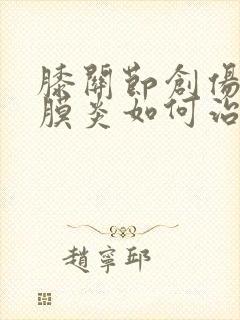 膝關節創傷
膜炎如何治
趙寧邱